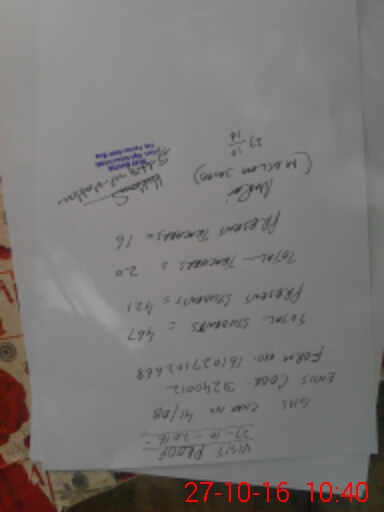 VISIT PROOF
27-10-2016
GHS CHAK NO 41/DB
EMIS CODE. 3240012
FORM NO. 161027102668
TOTAL STUDENTS = 467
PRESENT STUDENTS = 421
TOTAL TEACHERS = 20
PRESENT TEACHERS = 16
27/10/16
27-10-16 10:40